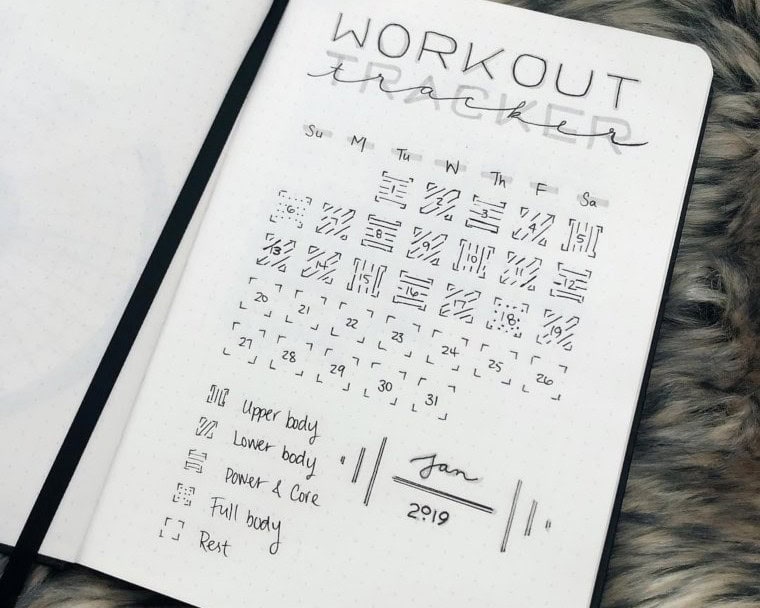 WORKOUT
TRACKER
tracker
Su M Tu W Th F Sa
1 2 3 4 5
6 7 8 9 10 11 12
13 14 15 16 17 18 19
20 21 22 23 24 25 26
27 28 29 30 31
Upper body
Lower body
Power & Core
Full body
Rest
Jan
2019